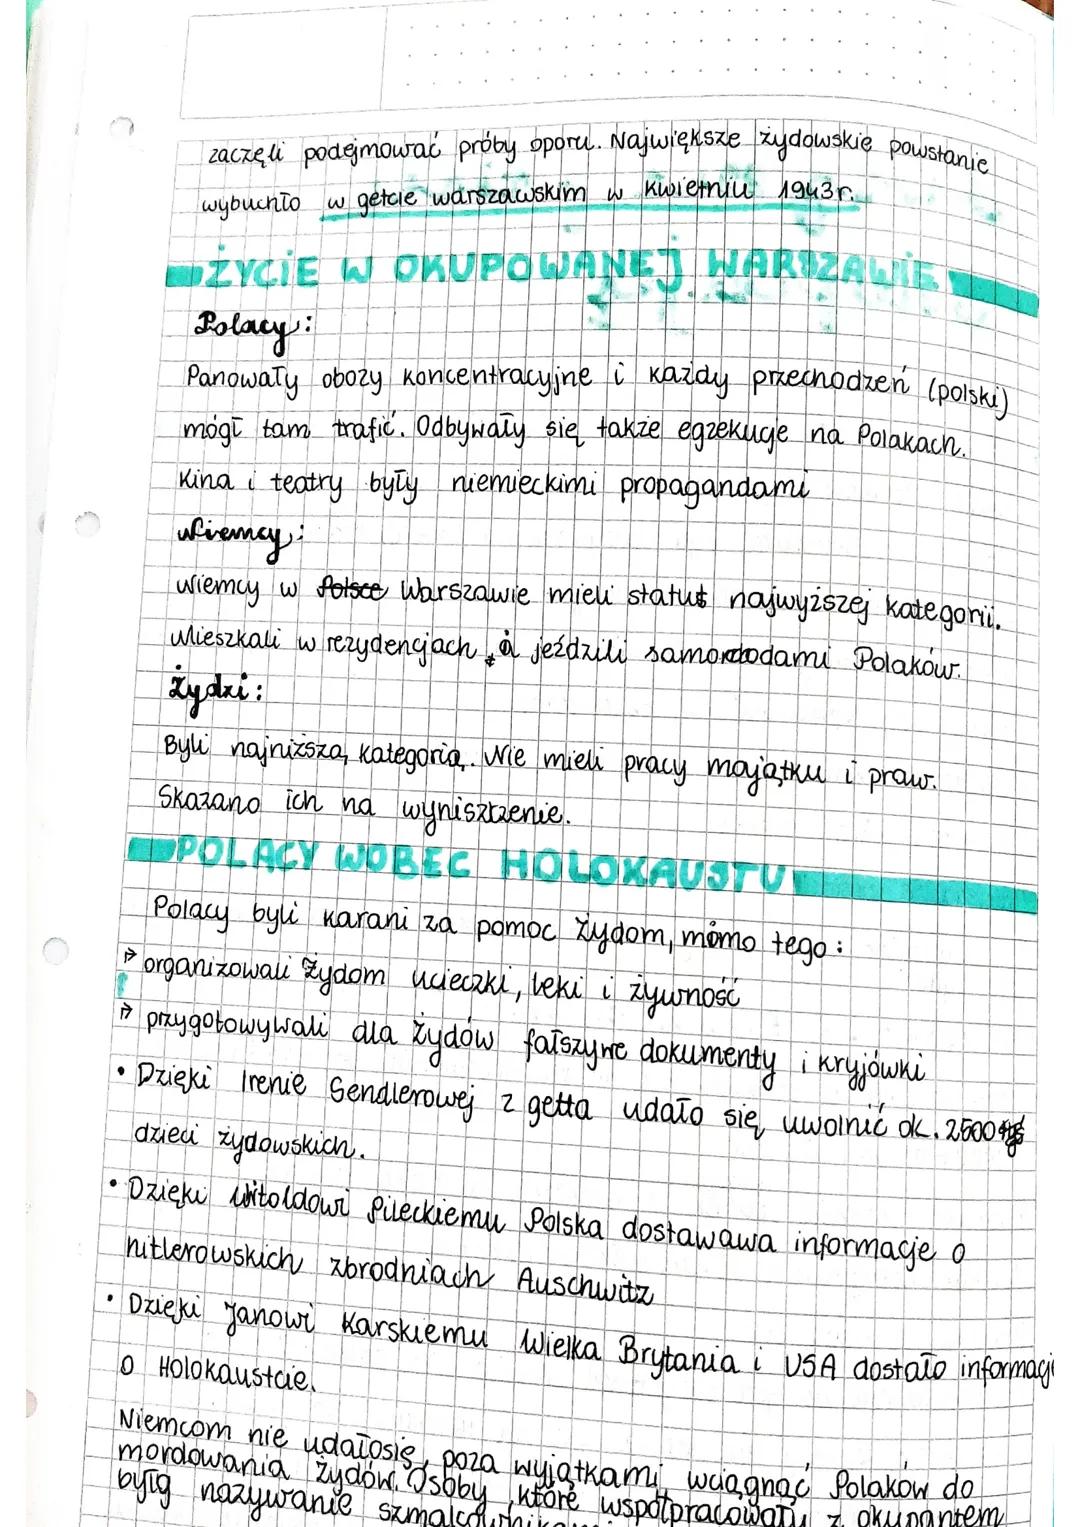 zaczęli podejmować próby oporu. Największe żydowskie powstanie
wybuchło w getcie warszawskim w kwietniu 1943r.
ŻYCIE W OKUPOWANEJ WARSZAWIE
Polacy:
Panowały obozy koncentracyjne i każdy przechodzeń (polski)
mógł tam trafić. Odbywały się także egzekucje na Polakach.
Kina i teatry były niemieckimi propagandami
Niemcy:
Niemcy w Polsce Warszawie mieli status najwyższej kategorii.
Mieszkali w rezydencjach, a jeździli samochodami Polaków.
Żydzi:
Byli najniższą kategorią. Nie mieli pracy majątku i praw.
Skazano ich na wyniszczenie.
POLACY WOBEC HOLOKAUSTU
Polacy byli karani za pomoc Żydom, mimo tego:
⇒ organizowali Żydom ucieczki, leki i żywność
⇒ przygotowywali dla Żydów fałszywe dokumenty i kryjówki
• Dzięki Irenie Sendlerowej z getta udało się uwolnić ok. 2500
dzieci żydowskich.
• Dzięki Witoldowi Pileckiemu Polska dostawawa informacje o
hitlerowskich zbrodniach Auschwitz
• Dzięki Janowi Karskiemu Wielka Brytania i USA dostało informacje
o Holokauście.
Niemcom nie udałosię, poza wyjątkami wciągnąć Polaków do
mordowania Żydów. Osoby, które współpracowały z okupantem
były nazywanie